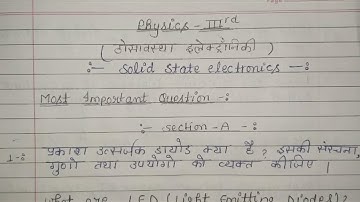 Physics - IIIrd
( ठोसावस्था इलेक्ट्रॉनिकी )
:- Solid State electronics -:
Most Important Question -:
:- Section - A -:
1:- प्रकाश उत्सर्जक डायोड क्या है? इसकी संरचना,
गुणो तथा उपयोगो को व्यक्त कीजिए।
What are LED (Light Emitting Diodes)?